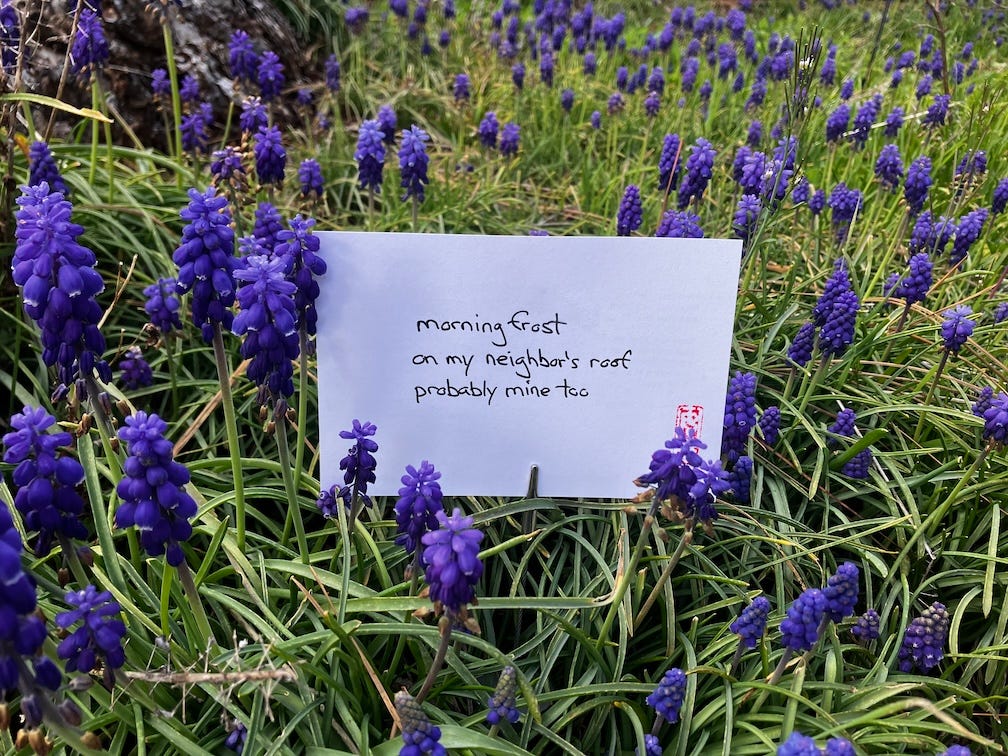 morning frost
on my neighbor's roof
probably mine too